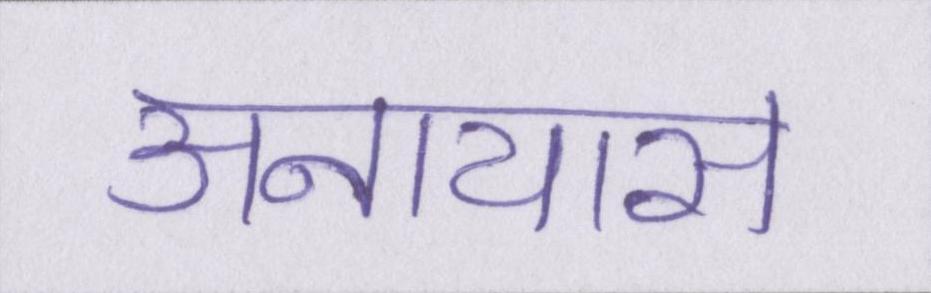 अनायास